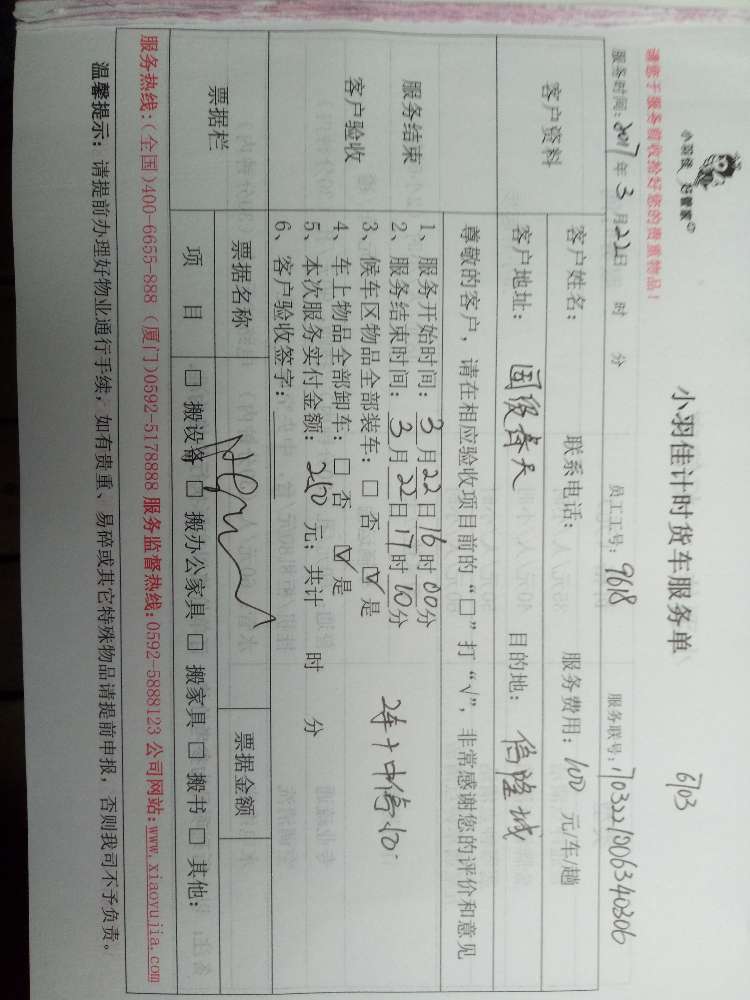 小羽佳 好管家
小羽佳计时货车服务单
6703
请您于服务前收拾好您的贵重物品！
服务时间：2017年3月22日 时 分 员工工号：9618 服务联号：1703221006340306
客户资料
客户姓名： 联系电话： 服务费用：100 元/车/趟
客户地址： 国级倚天 目的地： 信隆城
服务结束
客户验收
尊敬的客户，请在相应验收项目前的“□”打“√”，非常感谢您的评价和意见
1、服务开始时间：3月22日16时00分
2、服务结束时间：3月22日17时10分
3、候车区物品全部装车：□ 否 ☑ 是
4、车上物品全部卸车：□ 否 ☑ 是
5、本次服务实付金额：210 元；共计 时 分
6、客户验收签字：
票据栏
票据名称 票据金额
项 目 □ 搬设备 □ 搬办公家具 □ 搬家具 □ 搬书 □ 其他：
服务热线：(全国)400-6655-888 (厦门)0592-5178888 服务监督热线：0592-5888123 公司网站：www.xiaoyujia.com
温馨提示：请提前办理好物业通行手续，如有贵重、易碎或其它特殊物品请提前申报，否则我司不予负责。